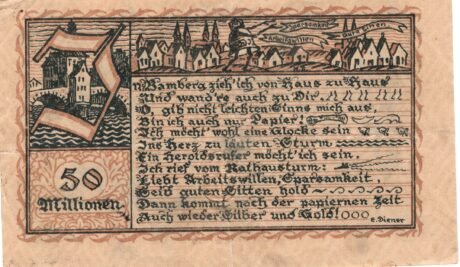 Sparsamkeit
Arbeitswillen
Gute Sitten
In Bamberg zieh ich von Haus zu Haus
Und wand're auch zu Dir
O, gib nicht leichten Sinns mich aus,
Bin ich auch nur Papier!
Ich möcht' wohl eine Glocke sein
Ins Herz zu läuten Sturm.
Ein Heroldsrufer möcht' ich sein.
Ich rief vom Rathausturm:
Liebt Arbeitswillen, Sparsamkeit
Seid guten Sitten hold
Dann kommt nach der papiernen Zeit
Auch wieder Silber und Gold!
50
Millionen
E. Diener